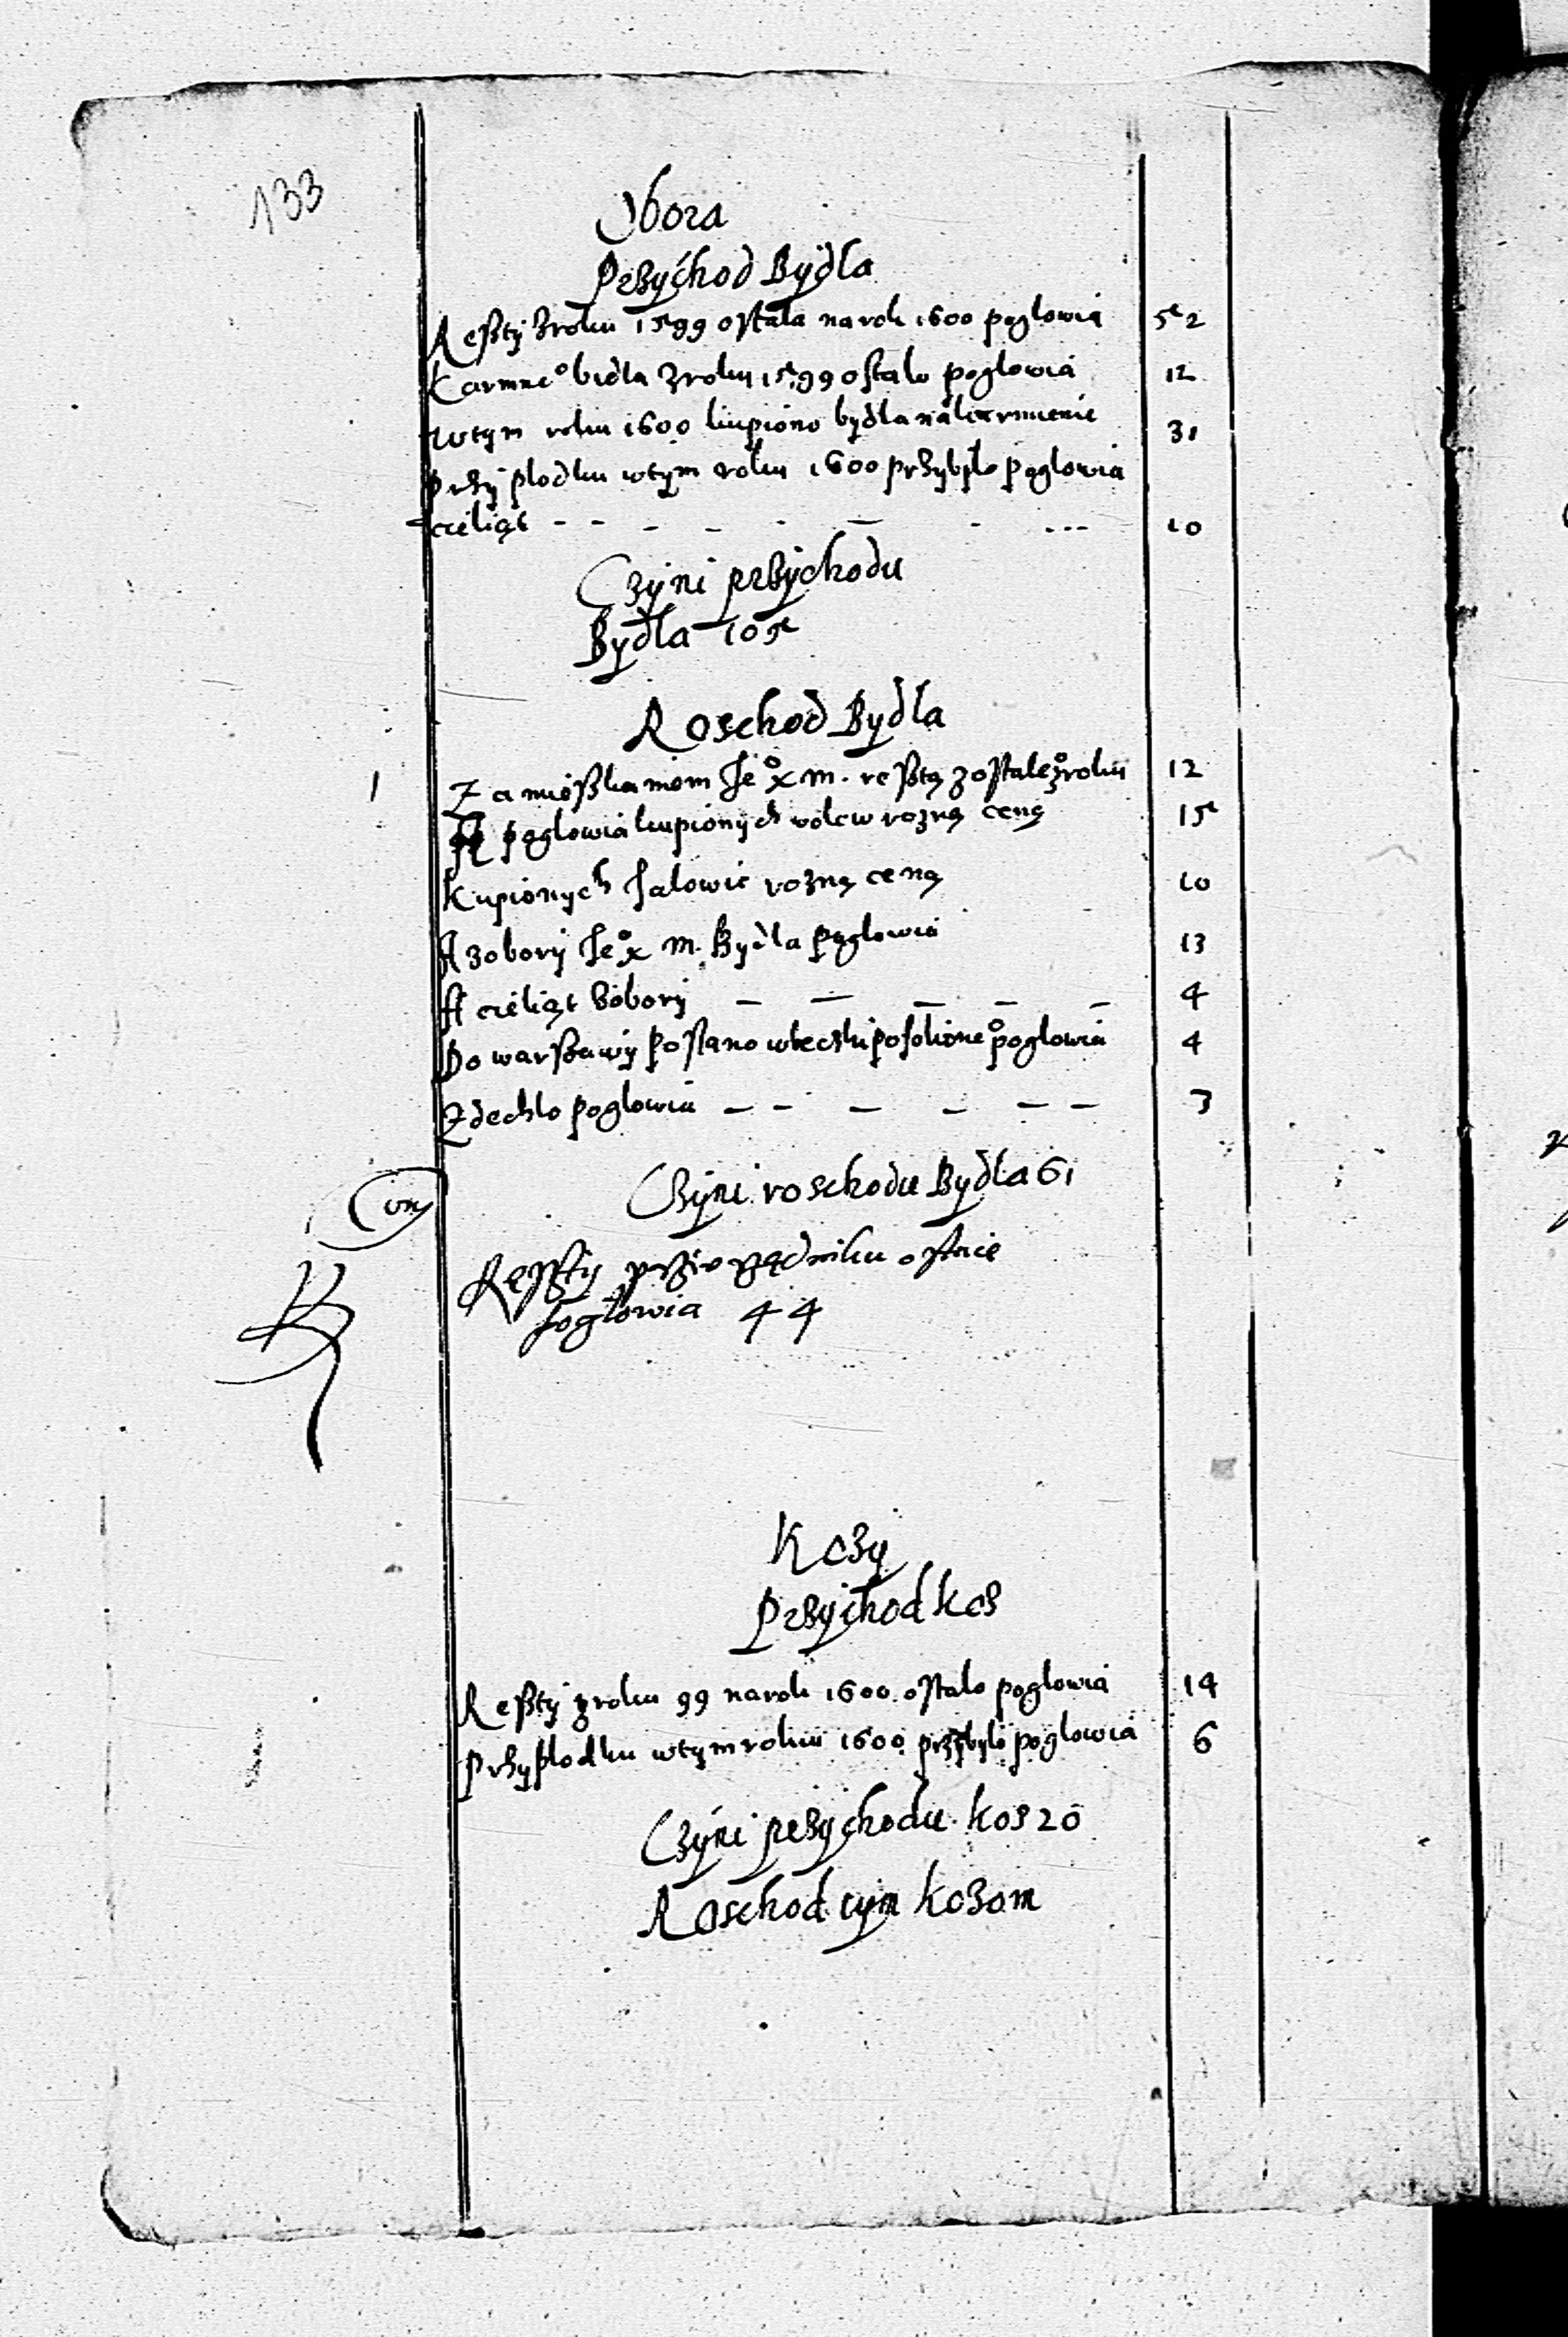 133
Obora
Przychod Bydła
Resztÿ z roku 1599 ostała na rok 1600 pogłowia 52
Karmne° bidla z roku 1599 ostało pogłowia 12
W tym roku 1600 kupiono bydła na karmienie 31
Przÿplodku w tÿm roku 1600 przybÿło pogłowia
cieliąt - - - - - - - - - 10
Czÿni przÿchodu
Bydła 105
Roschod Bydła
1 Za mieszkaniem Je° x m. resztą zostałe° z roku 12
A pogłowia kupionych wołow rozną ceną 15
Kupionych Jałowic rozną ceną 10
A z oborÿ Je° x m. Bydła pogłowia 13
A cieliąt z oborÿ — — — — — 4
Do warszawÿ posłano w beczki posolione° pogłowia 4
Zdechło pogłowia — — — — — — 3
Czÿni roschodu Bydła 61
Resztÿ przi vrzędniku ostaie
pogłowia 44
Kozy
Przychod kos
Resztÿ z roku 99 na rok 1600 ostało pogłowia 14
Przyplodku w tym roku 1600 przÿbyło pogłowia 6
Czÿni przychodu kos 20
Roschod tym kozom